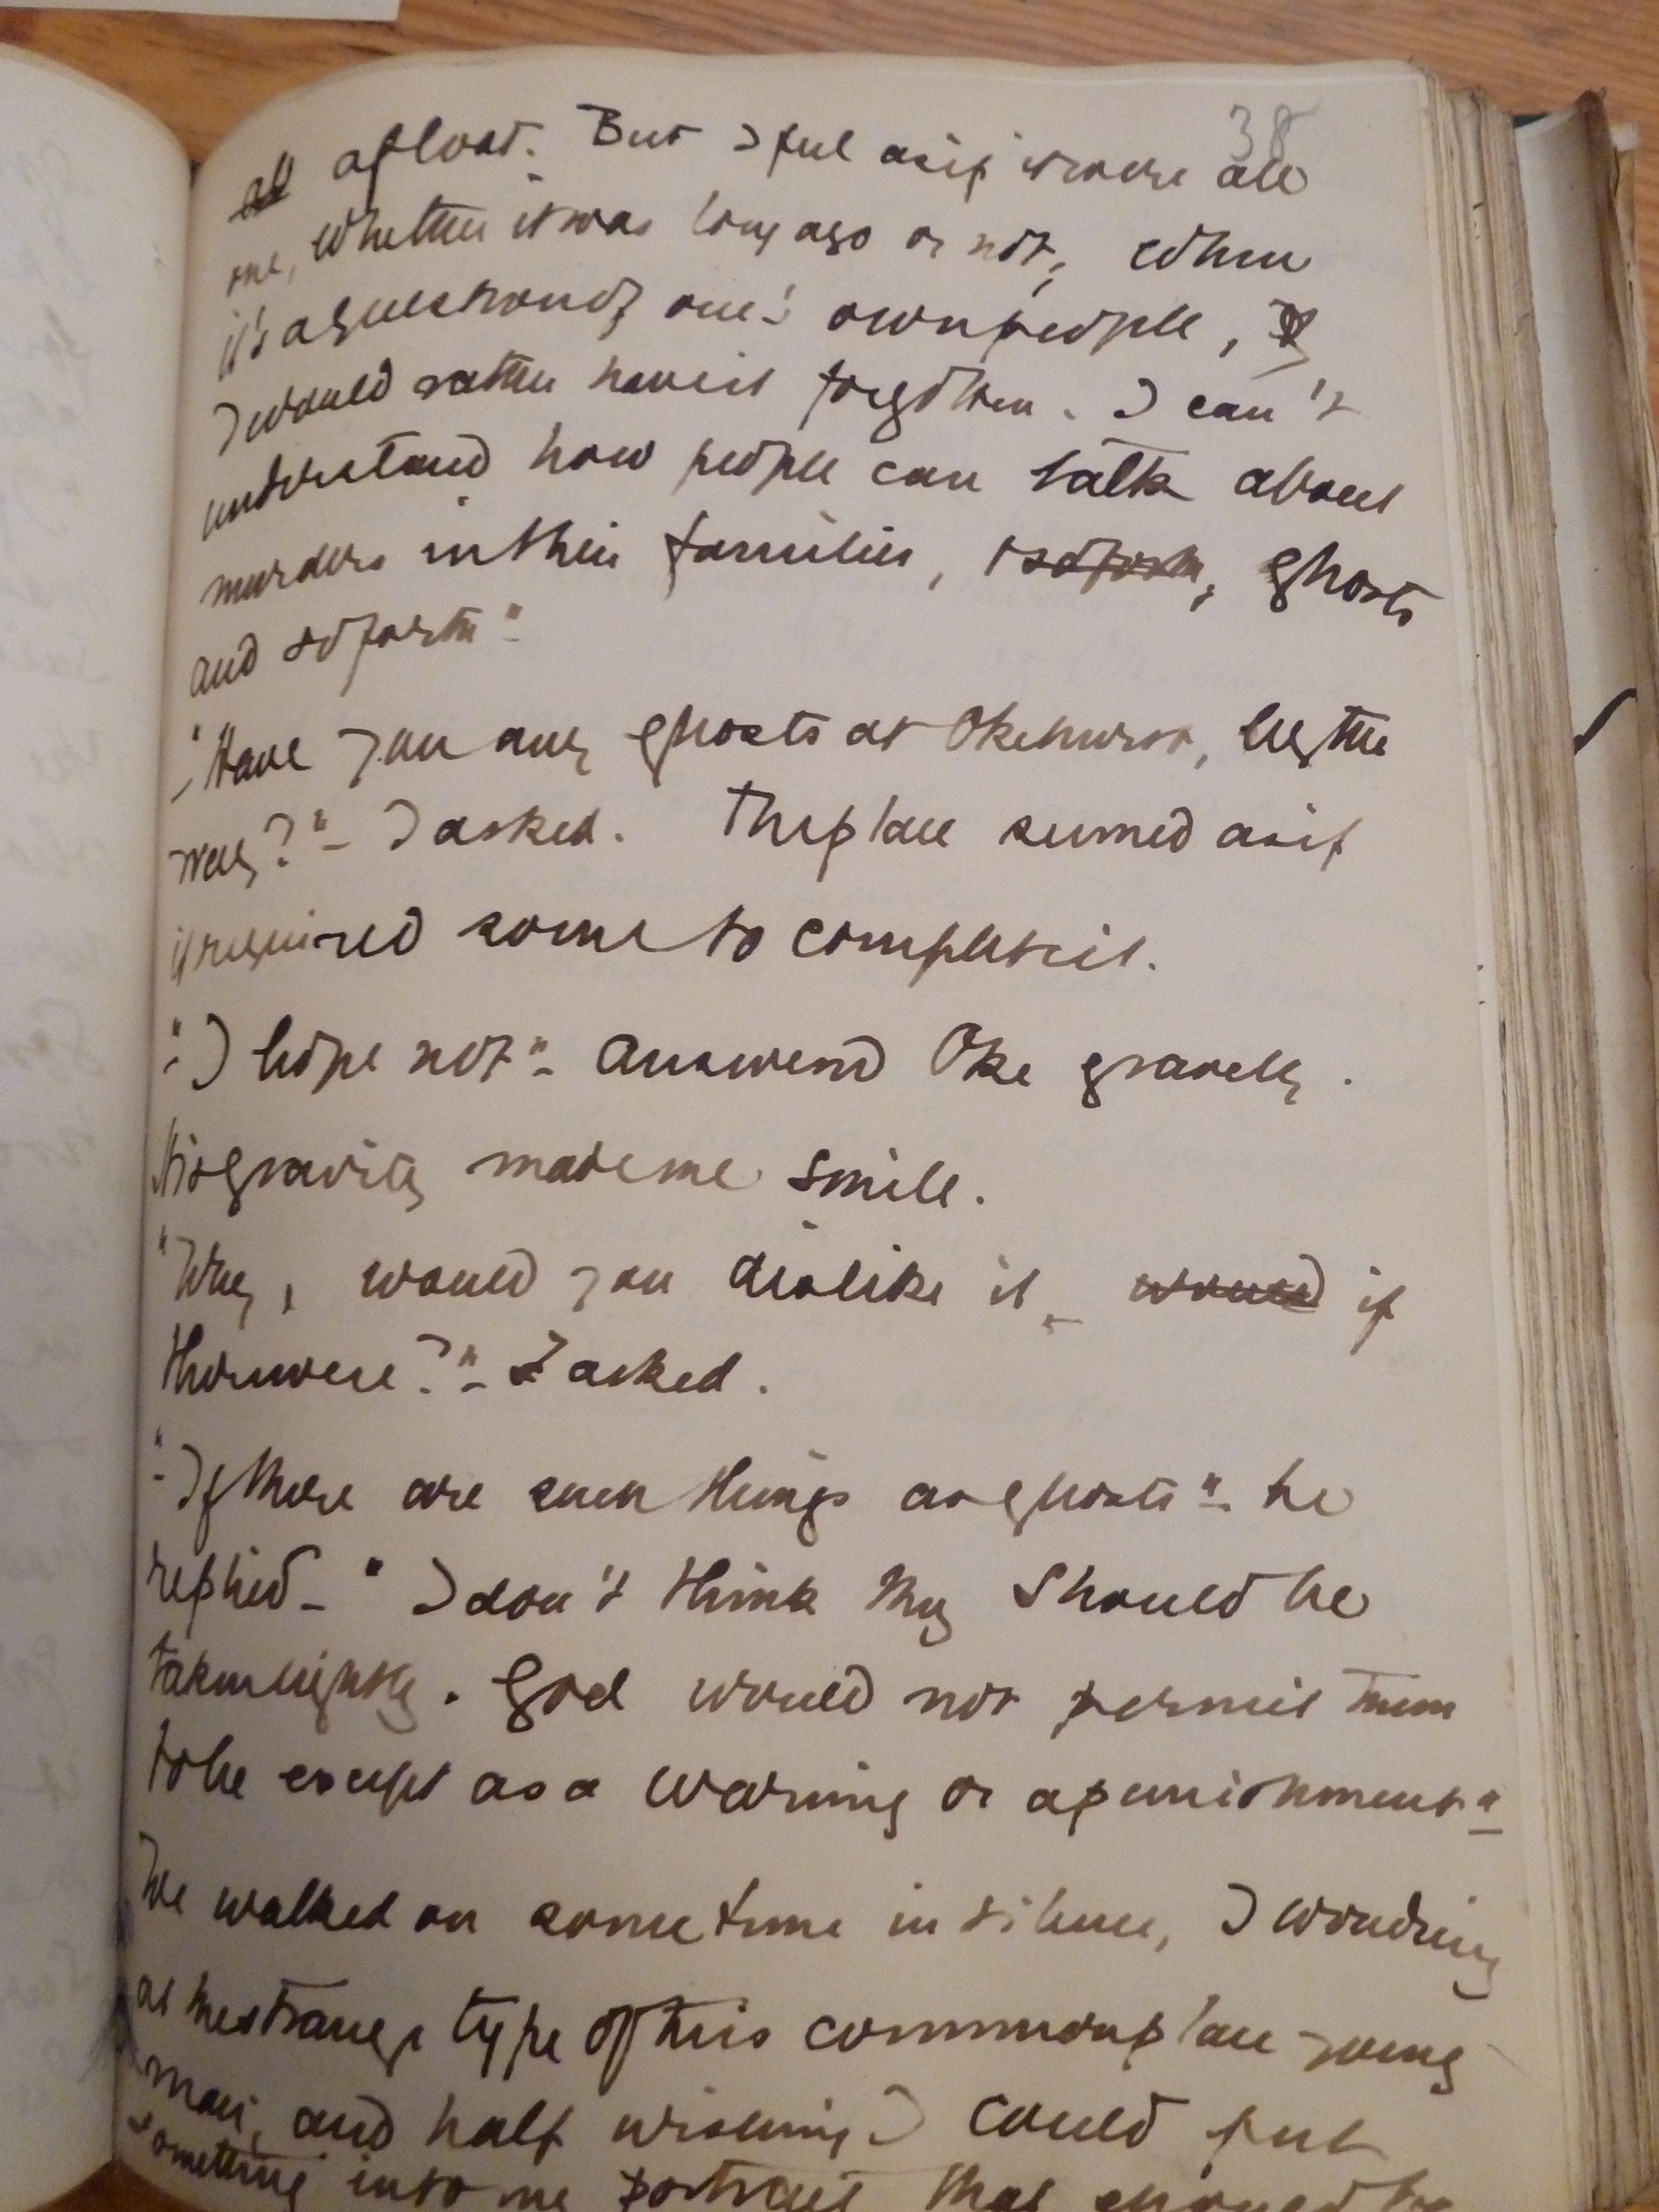 38
all afloat. But I feel as if it were all
one, whether it was long ago or not, when
it's a question of one's own people, I
I would rather have it forgotten. I can't
understand how people can talk about
murders in their families, & so forth, ghosts
and so forth"
"Have you any ghosts at Okehurst, by the
way?" - I asked. The place seemed as if
it required some to complete it.
"I hope not" - answered Oke gravely.
His gravity made me smile.
"Why, would you dislike it, would if
there were?" - I asked.
"If there are such things as ghosts" - he
replied - "I don't think they should be
taken lightly. God would not permit them
to be except as a warning or a punishment."
We walked on some time in silence, I wondring
at the strange type of this commonplace young
man, and half wishing I could put
something into my portrait that should be